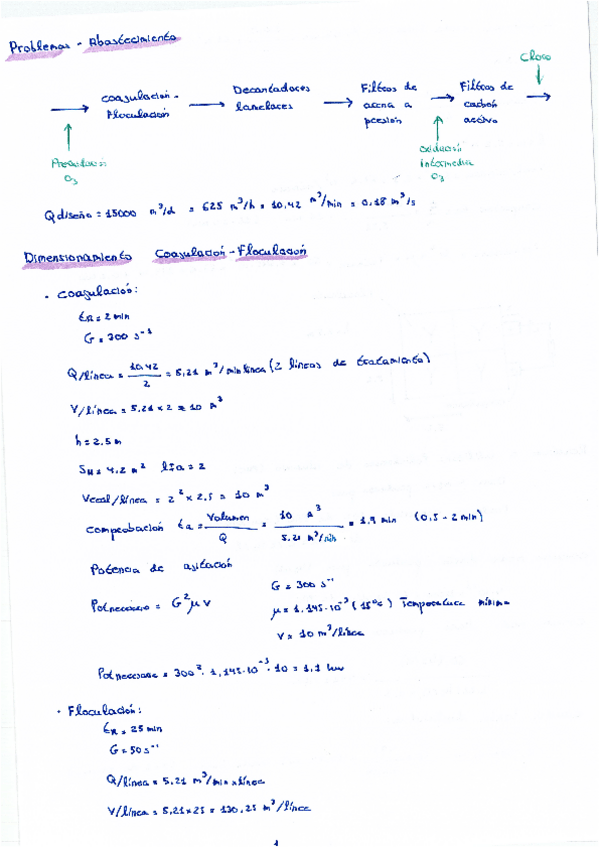 Problemas - Abastecimiento
Cloro
coagulación - Floculación
Decantadores lamelares
Filtros de arena a presión
Filtros de carbón activo
Preoxidación O3
oxidación intermedia O3
Q diseño = 15000 m³/d = 625 m³/h = 10,42 m³/min = 0,18 m³/s
Dimensionamiento Coagulación - Floculación
· Coagulación:
tR = 2 min
G = 300 s⁻¹
Q/línea = 10,42/2 = 5,21 m³/min línea (2 líneas de tratamiento)
V/línea = 5.21 x 2 ≈ 10 m³
h = 2.5 m
SH = 4.2 m² l = a = 2
Vreal/línea = 2² x 2,5 = 10 m³
comprobación tR = Volumen/Q = 10 m³/5.21 m³/min = 1.9 min (0,5 - 2 min)
Potencia de agitación
G = 300 s⁻¹
Pot necesario = G²μV
μ = 1,145·10⁻³ (15ºc) Temperatura mínima
V = 10 m³/línea
Pot necesaria = 300² · 1,145·10⁻³ · 10 = 1,1 kw
· Floculación:
tR = 25 min
G = 50 s⁻¹
Q/línea = 5,21 m³/min x línea
V/línea = 5,21x25 = 130,25 m³/línea
1